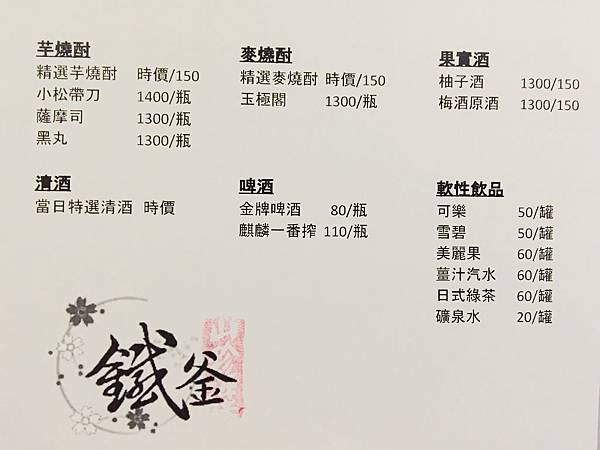 芋燒酎
精選芋燒酎 時價/150
小松帶刀 1400/瓶
薩摩司 1300/瓶
黑丸 1300/瓶
麥燒酎
精選麥燒酎 時價/150
玉極閣 1300/瓶
果實酒
柚子酒 1300/150
梅酒原酒 1300/150
清酒
當日特選清酒 時價
啤酒
金牌啤酒 80/瓶
麒麟一番搾 110/瓶
軟性飲品
可樂 50/罐
雪碧 50/罐
美麗果 60/罐
薑汁汽水 60/罐
日式綠茶 60/罐
礦泉水 20/罐
鐵釜